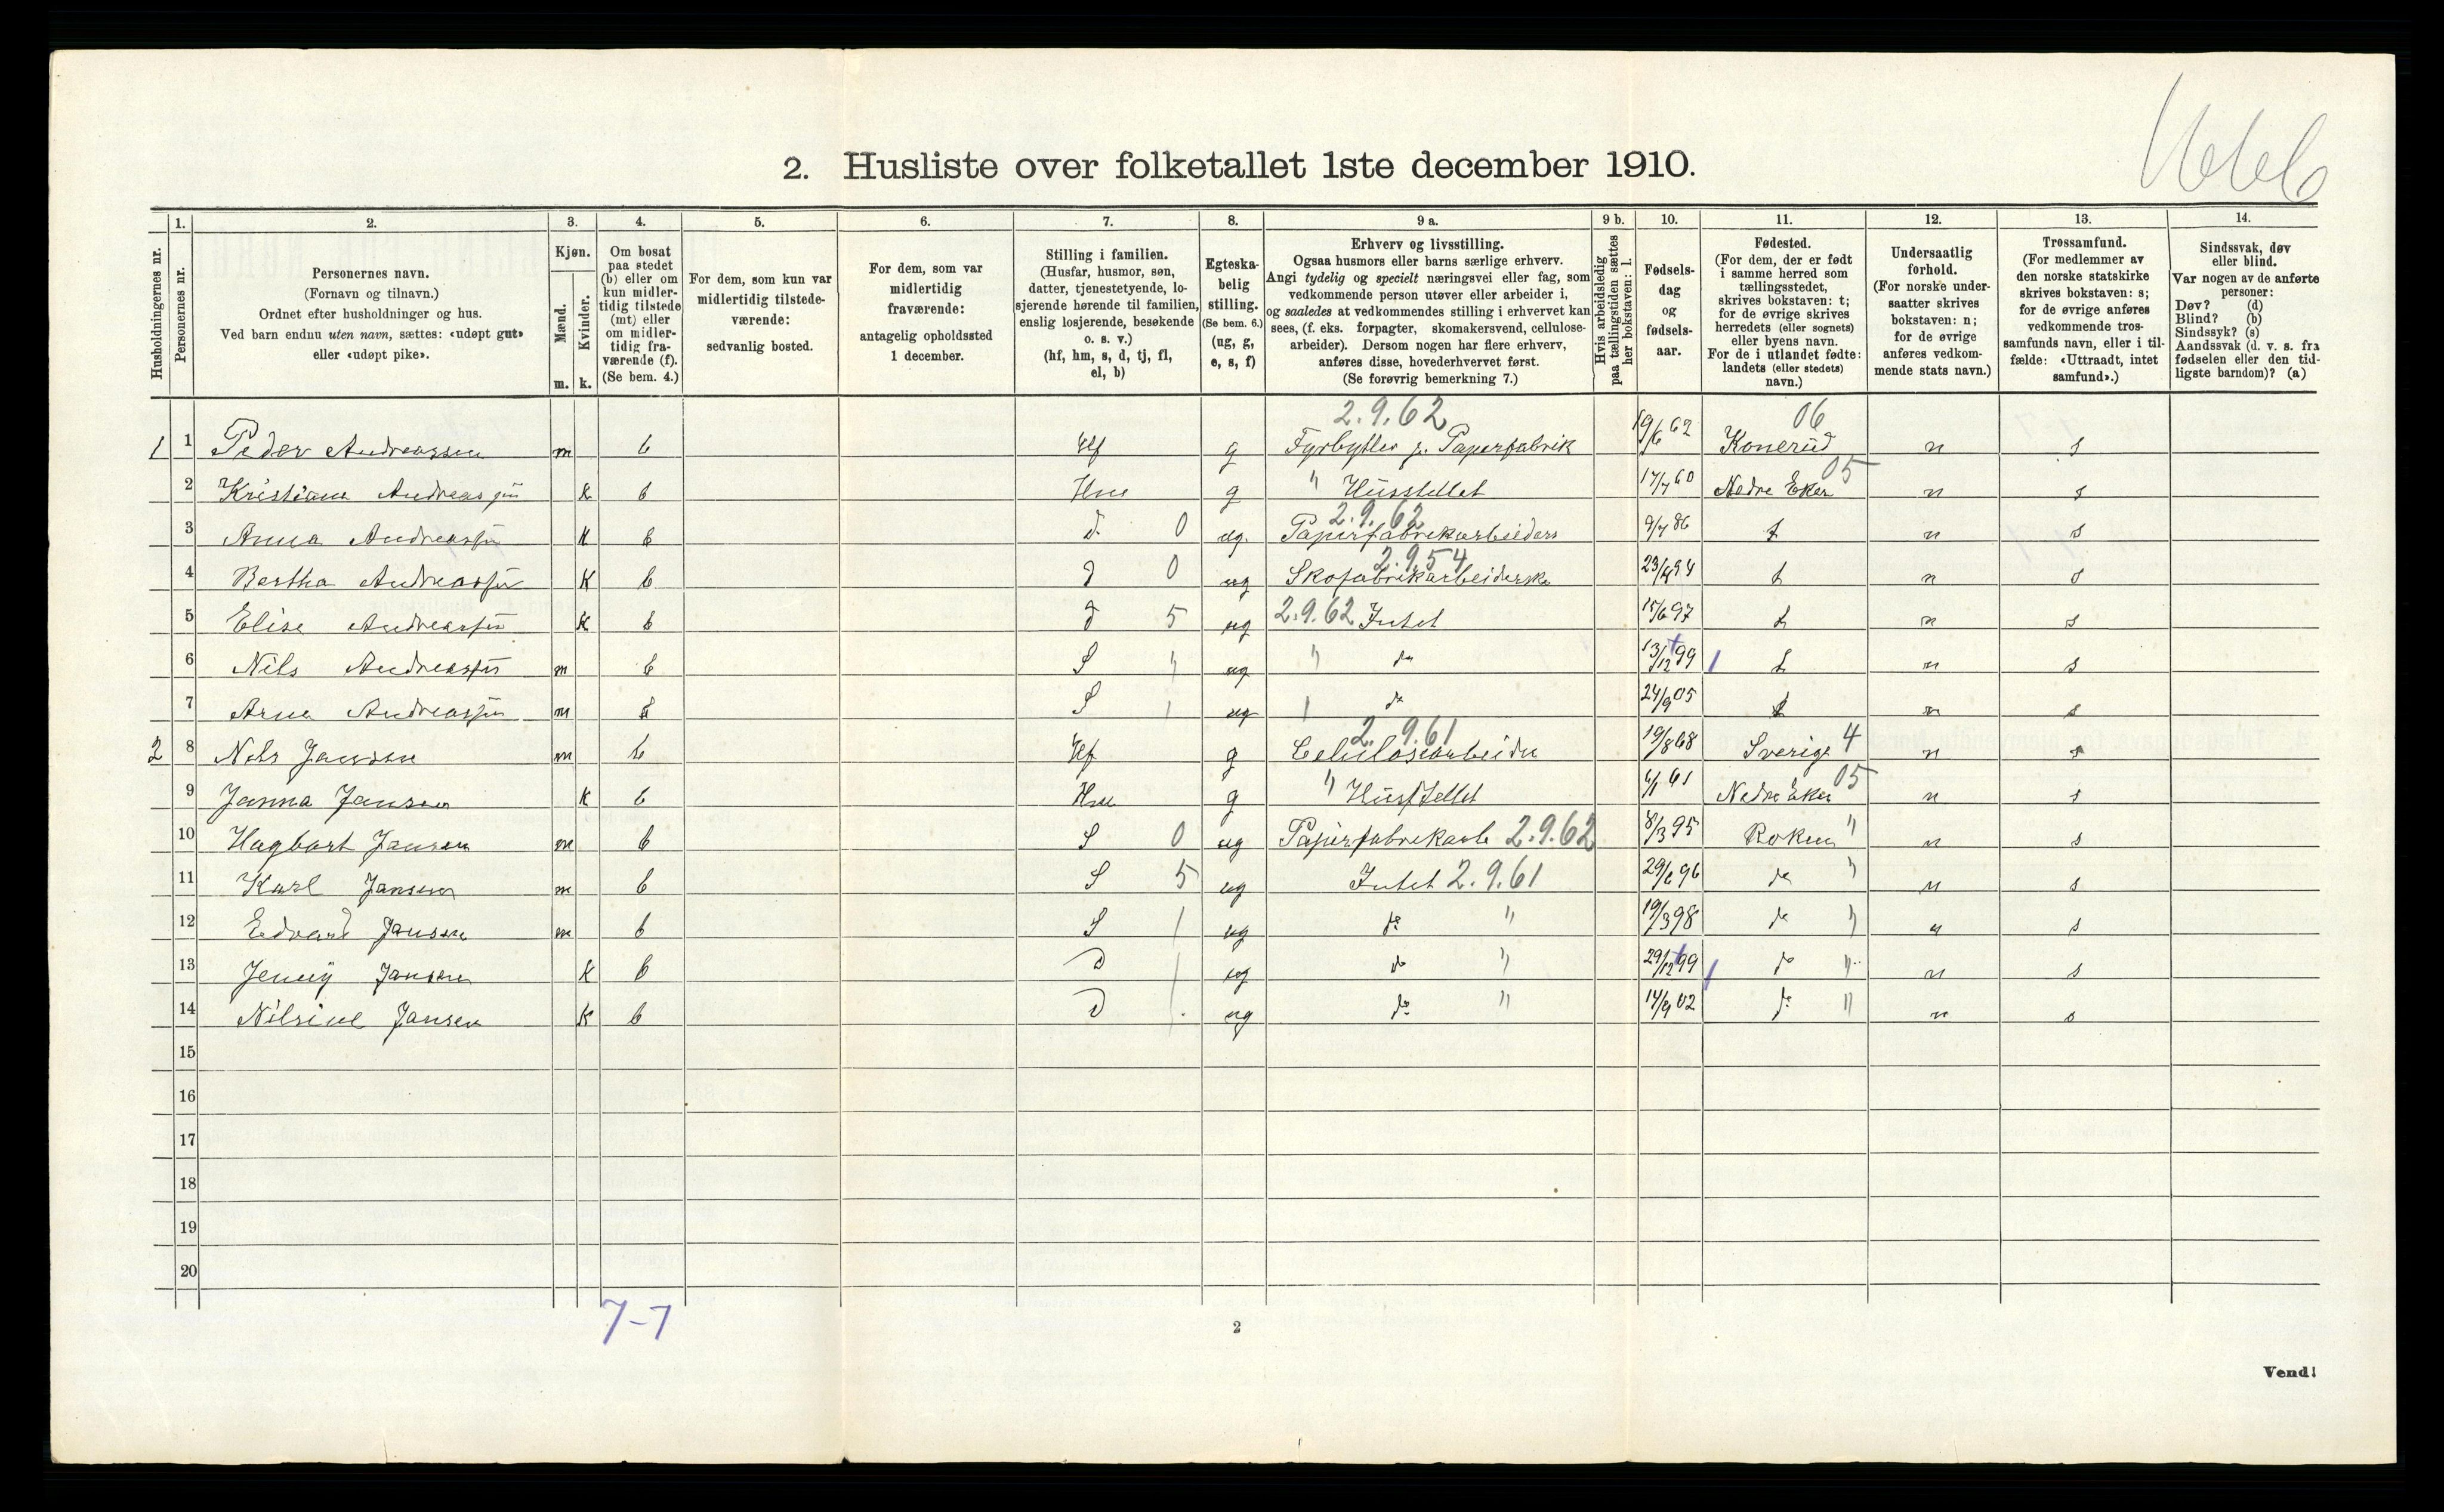 2. Husliste over folketallet 1ste december 1910.
1. 2. 3. 4. 5. 6. 7. 8. 9 a. 9 b. 10. 11. 12. 13. 14.
Husholdningernes nr.
Personernes nr.
Personernes navn.
(Fornavn og tilnavn.)
Ordnet efter husholdninger og hus.
Ved barn endnu uten navn, sættes: «udøpt gut»
eller «udøpt pike».
Kjøn.
Mænd.
Kvinder.
m. k.
Om bosat
paa stedet
(b) eller om
kun midler-
tidig tilstede
(mt) eller
om midler-
tidig fra-
værende (f).
(Se bem. 4.)
For dem, som kun var
midlertidig tilstede-
værende:
sedvanlig bosted.
For dem, som var
midlertidig
fraværende:
antagelig opholdssted
1 december.
Stilling i familien.
(Husfar, husmor, søn,
datter, tjenestetyende, lo-
sjerende hørende til familien,
enslig losjerende, besøkende
o. s. v.)
(hf, hm, s, d, tj, fl,
el, b)
Egteska-
belig
stilling.
(Se bem. 6.)
(ug, g,
e, s, f)
Erhverv og livsstilling.
Ogsaa husmors eller barns særlige erhverv.
Angi tydelig og specielt næringsvei eller fag, som
vedkommende person utøver eller arbeider i,
og saaledes at vedkommendes stilling i erhvervet kan
sees, (f. eks. forpagter, skomakersvend, cellulose-
arbeider). Dersom nogen har flere erhverv,
anføres disse, hovederhvervet først.
(Se forøvrig bemerkning 7.)
Hvis arbeidsledig
paa tællingstiden sættes
her bokstaven: l.
Fødsels-
dag
og
fødsels-
aar.
Fødested.
(For dem, der er født
i samme herred som
tællingsstedet,
skrives bokstaven: t;
for de øvrige skrives
herredets (eller sognets)
eller byens navn.
For de i utlandet fødte:
landets (eller stedets)
navn.)
Undersaatlig
forhold.
(For norske under-
saatter skrives
bokstaven: n;
for de øvrige
anføres vedkom-
mende stats navn.)
Trossamfund.
(For medlemmer av
den norske statskirke
skrives bokstaven: s;
for de øvrige anføres
vedkommende tros-
samfunds navn, eller i til-
fælde: «Uttraadt, intet
samfund».)
Sindssvak, døv
eller blind.
Var nogen av de anførte
personer:
Døv? (d)
Blind? (b)
Sindssyk? (s)
Aandssvak (d. v. s. fra
fødselen eller den tid-
ligste barndom)? (a)
2.9.62 06
1 1 Peder Andreassen m b Hf g Fyrbytter p. Papirfabrik 19/6 62 Konerud n s
2 Kristiane Andreassen k b Hm g " Husstellet 17/7 60 Nedre Eker 05 n s
2.9.62
3 Anna Andreassen K b d. 0 ug. Papirfabrikarbeiders 9/7 86 t n s
2.9.54
4 Bertha Andreassen K b d 0 ug Skofabrikarbeiderske 23/8 94 t n s
5 Elise Andreassen K b d 5 ug 2.9.62 Intet 15/6 97 t n s
6 Nils Andreassen m b S " ug " do 13/12 99 1 t n s
7 Arne Andreassen m b S ug do 24/9 05 t n s
2.9.61
2 8 Nils Jansen m b Hf g Celulosearbeider 19/8 68 Sverige 4 n s
9 Janna Jansen K b Hm g " Husstellet 6/1 61 Nedre Eker 05 n s
10 Hagbart Jansen m b S 0 ug Papirfabrikarb 2.9.62 8/3 95 Roken " n s
11 Karl Jansen m b S 5 ug Intet 2.9.61 29/6 96 do " n s
12 Edvard Jansen m b S ug do " 19/3 98 do " n s
13 Jenny Jansen K b D ug do " 29/12 99 1 do " n s
14 Nilsine Jansen K b D ug do " 14/9 02 do " n s
15
16
17
18
19
20
7-7
2
Vend!